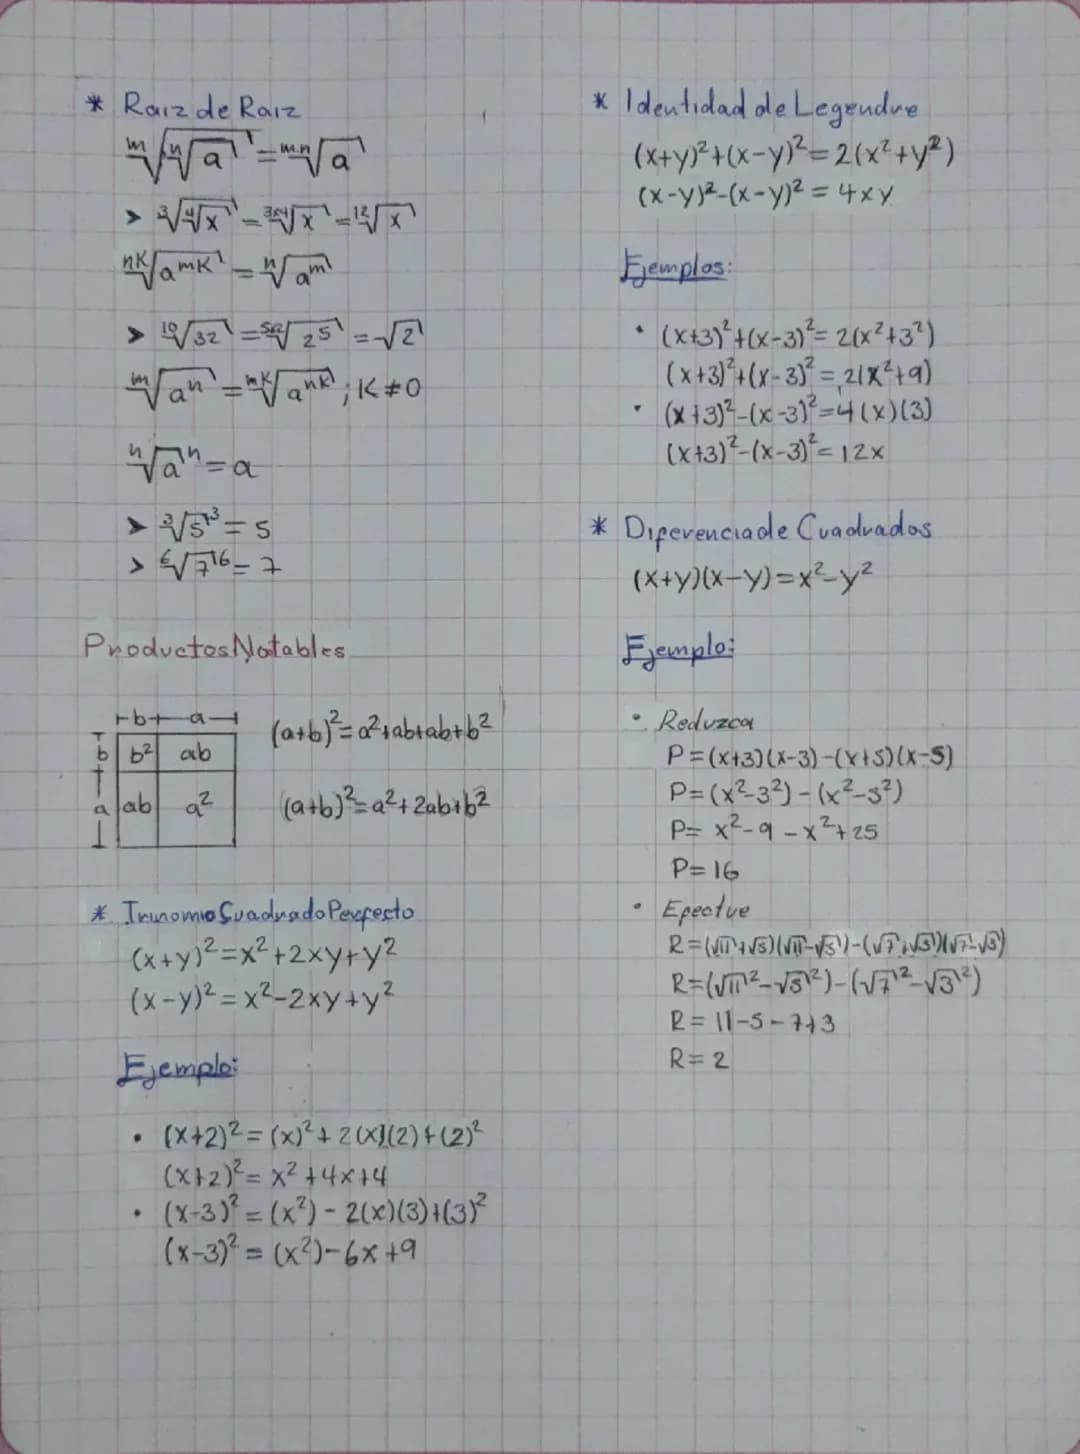 * Raiz de Raiz
ᵐ√(ⁿ√a) = ᵐ·ⁿ√a
> ³√(⁴√x) = ³ˣ⁴√x = ¹²√x
ⁿᴷ√(aᵐᴷ) = ⁿ√(aᵐ)
> ¹⁰√32 = ⁵ˣ²√(2⁵) = √2
ᵐ√(aⁿ) = ᵐᴷ√(aⁿᴷ) ; K ≠ 0
ⁿ√aⁿ = a
> ³√5³ = 5
> ⁶√7⁶ = 7
Productos Notables
b a
b b² ab
a ab a²
(a+b)² = a²+ab+ab+b²
(a+b)² = a²+2ab+b²
* Trinomio Cuadrado Perfecto
(x+y)² = x²+2xy+y²
(x-y)² = x²-2xy+y²
Ejemplo:
• (x+2)² = (x)²+2(x)(2)+(2)²
(x+2)² = x²+4x+4
• (x-3)² = (x²) - 2(x)(3)+(3)²
(x-3)² = (x²)-6x+9
* Identidad de Legendre
(x+y)²+(x-y)² = 2(x²+y²)
(x-y)²-(x-y)² = 4xy
Ejemplos:
• (x+3)²+(x-3)² = 2(x²+3²)
(x+3)²+(x-3)² = 2(x²+9)
• (x+3)²-(x-3)² = 4(x)(3)
(x+3)²-(x-3)² = 12x
* Diferencia de Cuadrados
(x+y)(x-y) = x²-y²
Ejemplo:
• Reduzca
P = (x+3)(x-3)-(x+5)(x-5)
P = (x²-3²) - (x²-5²)
P = x²-9-x²+25
P = 16
• Efectue
R = (√11+√5)(√11-√5)-(√7+√3)(√7-√3)
R = (√11²-√5²)-(√7²-√3²)
R = 11-5-7+3
R = 2